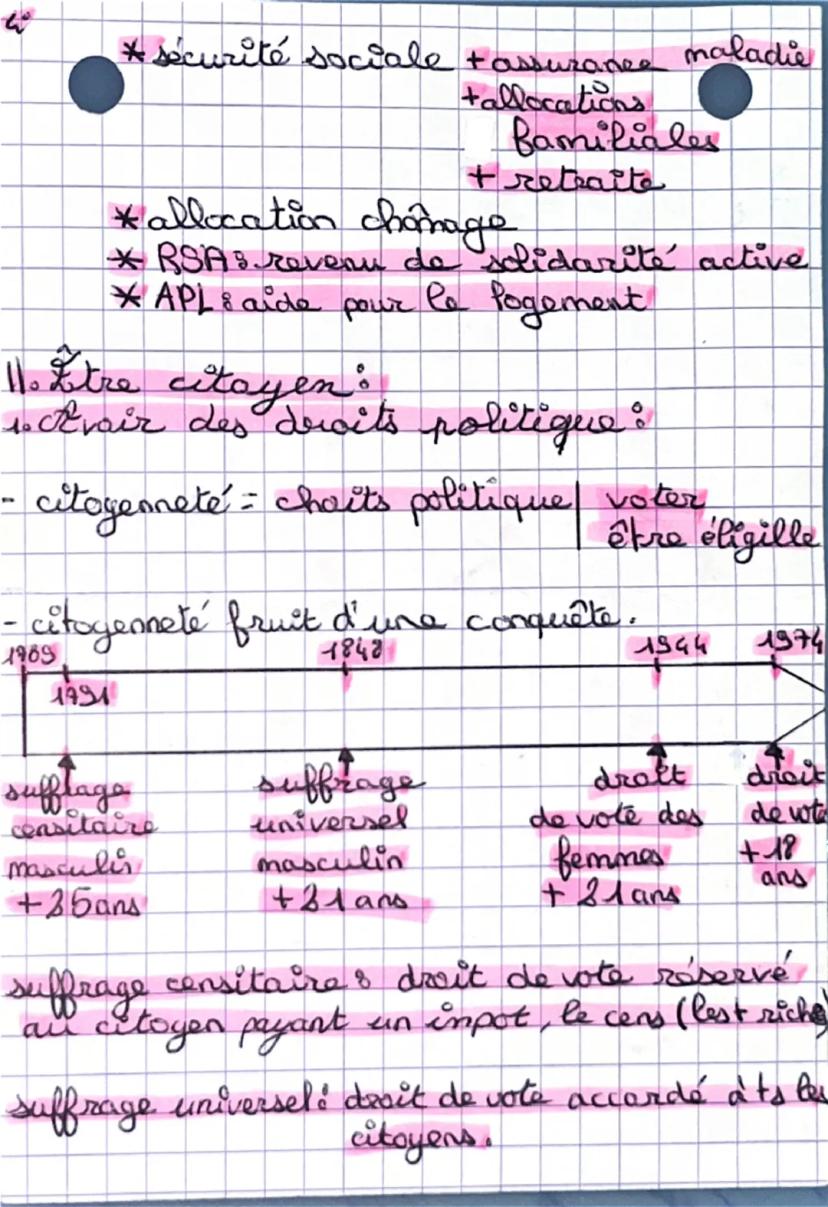 * sécurité sociale + assurance maladie
+ allocations
familiales
+ retraite
* allocation chômage
* RSA : revenu de solidarité active
* APL : aide pour le logement
II. Être citoyen :
1. Avoir des droits politique :
- citoyenneté = droits politique | voter
être éligille
- citoyenneté fruit d'une conquête.
1789 1848 1944 1974
1791
suffrage suffrage droit droit
censitaire universel de vote des de vote
masculin masculin femmes + 18
+ 25 ans + 21 ans + 21 ans ans
suffrage censitaire : droit de vote réservé
au citoyen payant un inpot, le cens (les + riche)
suffrage universel : droit de vote accordé à ts les
citoyens.